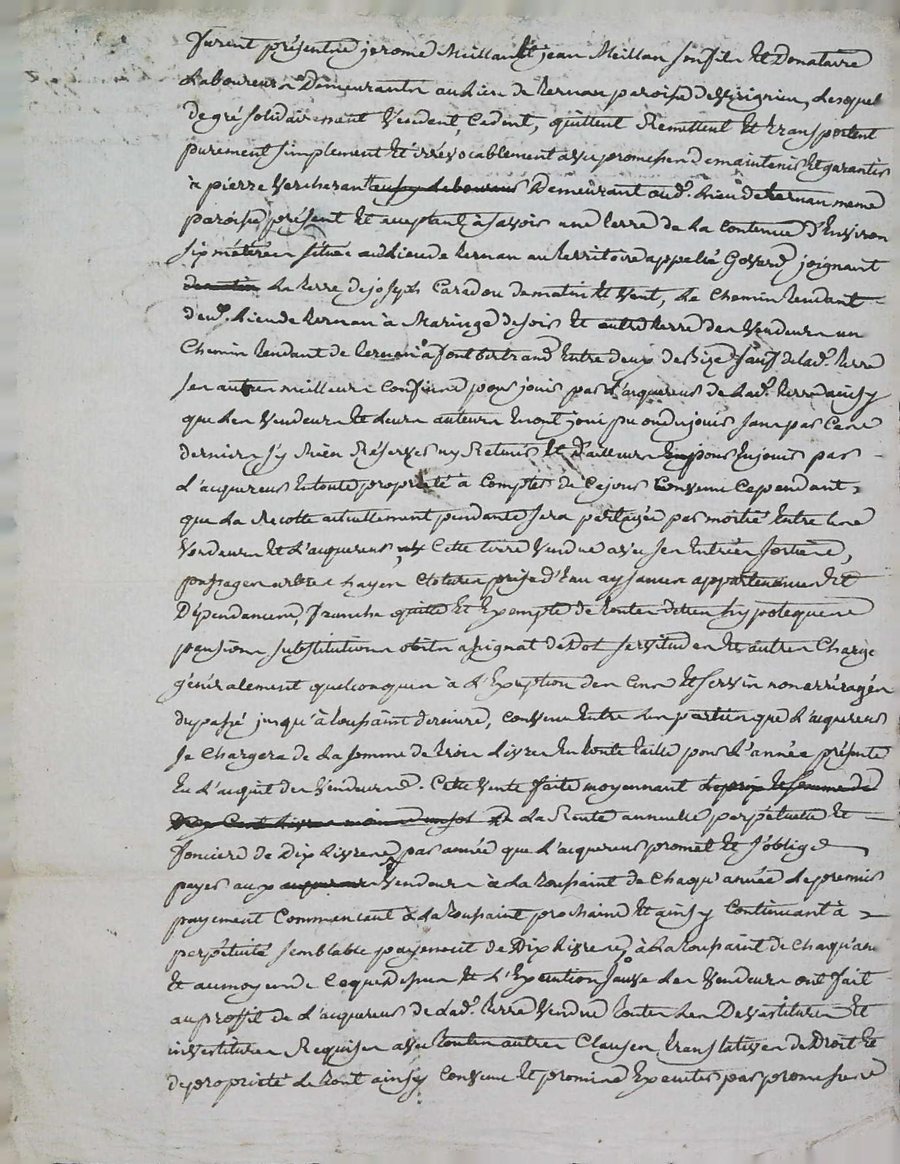 furent présentés jerome Meillan et jean Meillan son fils et Donataire
Laboureurs Demeurants au lieu de Kernan paroisse de virignieu, Lesquels
de gré solidairement Vendent, Cedent, quittent Remettent Et transportent
purement simplement Et irrévocablement avec promesses de maintenir Et garantir
à pierre Vercherand Demeurant aud. Lieu de Kernan meme
paroisse présent Et acceptant à savoir une terre de la contenue d'Environ
six métérées située au Lieu de Kernan au territoire appellé joignant
La terre de joseph Caradou de matin Et vent, Le Chemin tendant
dud. Lieu de Kernan à Maringe de soir Et autre terre des Vendeurs un
Chemin tendant de Kernan à font bertrand Entre deux de Bize sauf de lad. terre
ses autres meilleurs Confins pour jouir par l'aquereur de lad. terre ainsy
que les Vendeurs Et Leurs auteurs En ont joui pu ou du jouir sans par Ces
derniers s'y Rien Réserver ny Retenir Et d'ailleurs pour En jouir par
L'aquereur En toute proprieté à Compter de Ce jour Convenu Cependant,
que La Recolte actuellement pendante sera partagée par moitié Entre Les
Vendeurs Et L'aquereur, Cette terre Vendue avec ses Entrées sorties,
passages arbres hayes Clotures prise d'Eau aysances appartenances Et
Dépendances, franche quitte Et Exempte de toutes dettes hypoteques
pensions substitutions obits assignat de Dot servitudes Et autres Charges
généralement quelconques à L'Exception des Cens Et servis non arréragés
du passé jusqu'à toussaint derniere, Convenu Entre Les parties que L'aquereur
se Chargera de La somme de trois Livres En toute taille pour L'année présente
En L'aquit des Vendeurs. Cette Vente faite moyennant Le prix Et somme de
La Rente annuelle perpétuelle Et
fonciere de Dix Livres par année que L'aquereur promet Et s'oblige
payer aux Vendeurs à La toussaint de Chaqu'année Le premier
payement Commencant à La toussaint prochaine Et ainsy Continuant à
perpétuité semblable payement de Dix Livres à La toussaint de Chaqu'an
Et au moyen de Ce que Dessus Et L'Execution sauve Les Vendeurs ont fait
au proffit de L'aquereur de Lad. terre Vendue toutes Les Devestitures Et
investitures Requises avec toutes autres Clauses translatives de Droit Et
de proprieté Le tout ainsy Convenu Et promis Executer par promesses